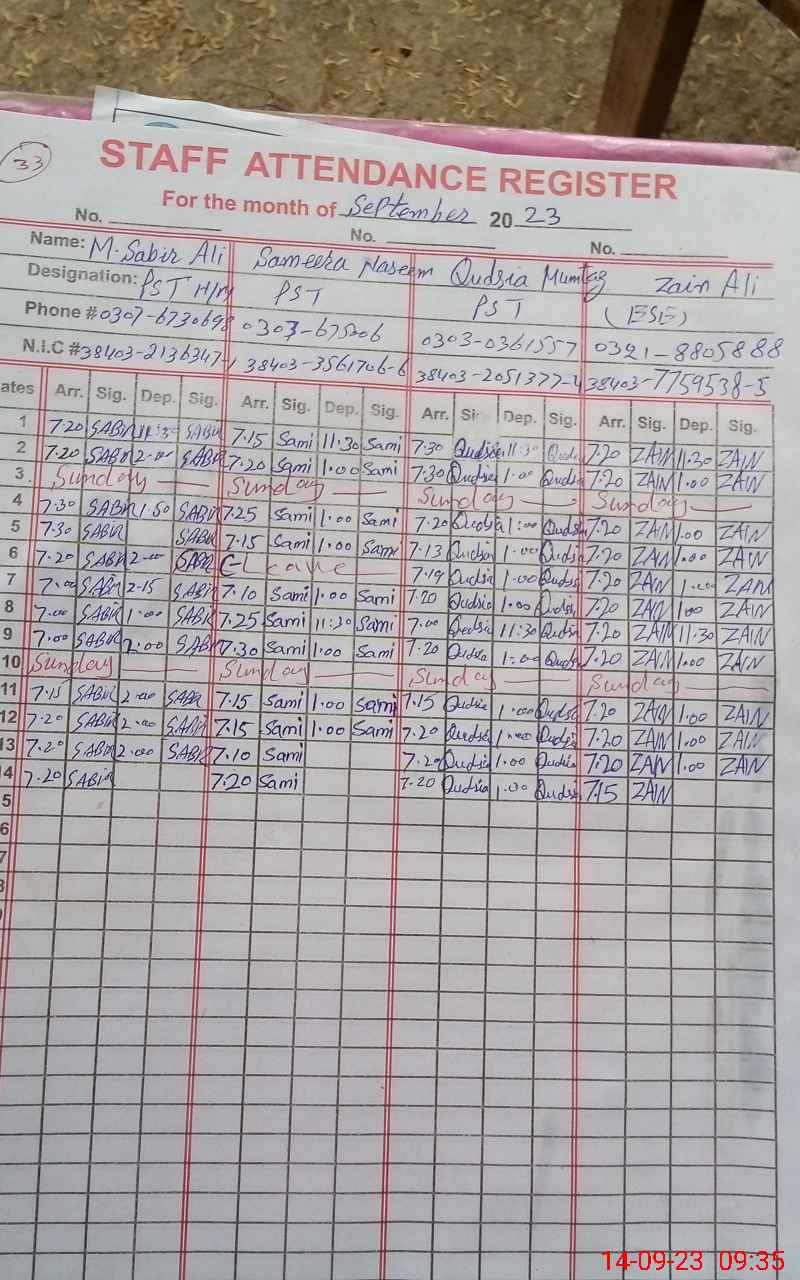 33
STAFF ATTENDANCE REGISTER
For the month of September 2023
No. No. No.
Name: M. Sabir Ali Sameera Naseem Qudsia Mumtaz Zain Ali
Designation: PST H/M PST PST (ESE)
Phone # 0307-6730698 0303-675306 0303-0361557 0321-8805888
N.I.C # 38403-2136347-1 38403-3561706-6 38403-2051377-4 38403-7759538-5
ates Arr. Sig. Dep. Sig. Arr. Sig. Dep. Sig. Arr. Si Dep. Sig. Arr. Sig. Dep. Sig.
1 7.20 SABIR 11.30 SABIR 7.15 Sami 11.30 Sami 7.30 Qudsia 11.30 Qudsia 7.20 ZAIN 11.30 ZAIN
2 7.20 SABIR 2.00 SABIR 7.20 Sami 1.00 Sami 7.30 Qudsia 1.00 Qudsia 7.20 ZAIN 1.00 ZAIN
3 Sunday Sunday Sunday Sunday
4 7.30 SABIR 1.50 SABIR 7.25 Sami 1.00 Sami 7.20 Qudsia 1.00 Qudsia 7.20 ZAIN 1.00 ZAIN
5 7.30 SABIR SABIR 7.15 Sami 1.00 Sami 7.13 Qudsia 1.00 Qudsia 7.20 ZAIN 1.00 ZAIN
6 7.20 SABIR 2.00 SABIR C-Leave 7.19 Qudsia 1.00 Qudsia 7.20 ZAIN 1.00 ZAIN
7 7.00 SABIR 2.15 SABIR 7.10 Sami 1.00 Sami 7.20 Qudsia 1.00 Qudsia 7.20 ZAIN 1.00 ZAIN
8 7.00 SABIR 1.00 SABIR 7.25 Sami 11.30 Sami 7.00 Qudsia 11.30 Qudsia 7.20 ZAIN 11.30 ZAIN
9 7.00 SABIR 2.00 SABIR 7.30 Sami 1.00 Sami 7.20 Qudsia 1.00 Qudsia 7.20 ZAIN 1.00 ZAIN
10 Sunday Sunday Sunday Sunday
11 7.15 SABIR 2.00 SABIR 7.15 Sami 1.00 Sami 7.15 Qudsia 1.00 Qudsia 7.20 ZAIN 1.00 ZAIN
12 7.20 SABIR 2.00 SABIR 7.15 Sami 1.00 Sami 7.20 Qudsia 1.00 Qudsia 7.20 ZAIN 1.00 ZAIN
13 7.20 SABIR 2.00 SABIR 7.10 Sami 7.20 Qudsia 1.00 Qudsia 7.20 ZAIN 1.00 ZAIN
14 7.20 SABIR 7.20 Sami 7.20 Qudsia 1.00 Qudsia 7.15 ZAIN
5
6
7
14-09-23 09:35